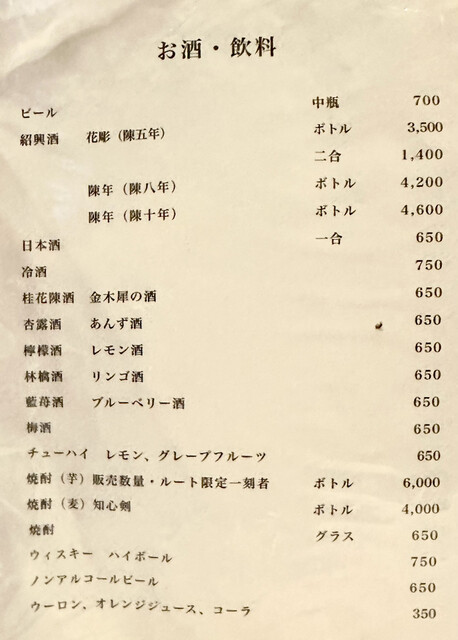 お酒・飲料
ビール 中瓶 700
紹興酒 花彫（陳五年） ボトル 3,500
二合 1,400
陳年（陳八年） ボトル 4,200
陳年（陳十年） ボトル 4,600
日本酒 一合 650
冷酒 750
桂花陳酒 金木犀の酒 650
杏露酒 あんず酒 650
檸檬酒 レモン酒 650
林檎酒 リンゴ酒 650
藍苺酒 ブルーベリー酒 650
梅酒 650
チューハイ レモン、グレープフルーツ 650
焼酎（芋）販売数量・ルート限定一刻者 ボトル 6,000
焼酎（麦）知心剣 ボトル 4,000
焼酎 グラス 650
ウィスキー ハイボール 750
ノンアルコールビール 650
ウーロン、オレンジジュース、コーラ 350